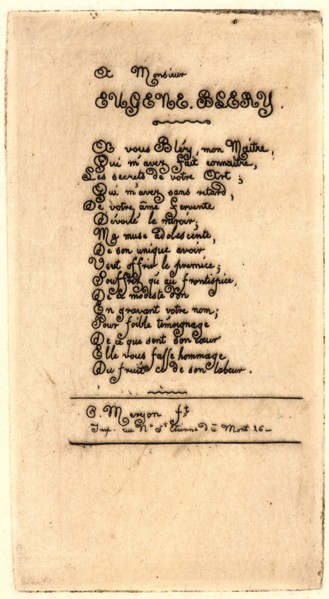 A Monsieur
EUGÈNE. BLERY.
A vous Bléry, mon Maître,
Qui m'avez fait connaître,
Les secrets de votre Art;
Qui m'avez sans retard,
De votre âme fervente
Dévoilé le miroir,
Ma muse adolescente,
De son unique avoir
Vient offrir le prémice;
Souffrez qu'au frontispice,
De ce modeste don
En gravant votre nom;
Pour foible témoignage
De ce que sent son cœur
Elle vous fasse hommage
Du fruit de son labeur.
C. Meryon ft
Imp. rue Ne St Etienne du Mont 26